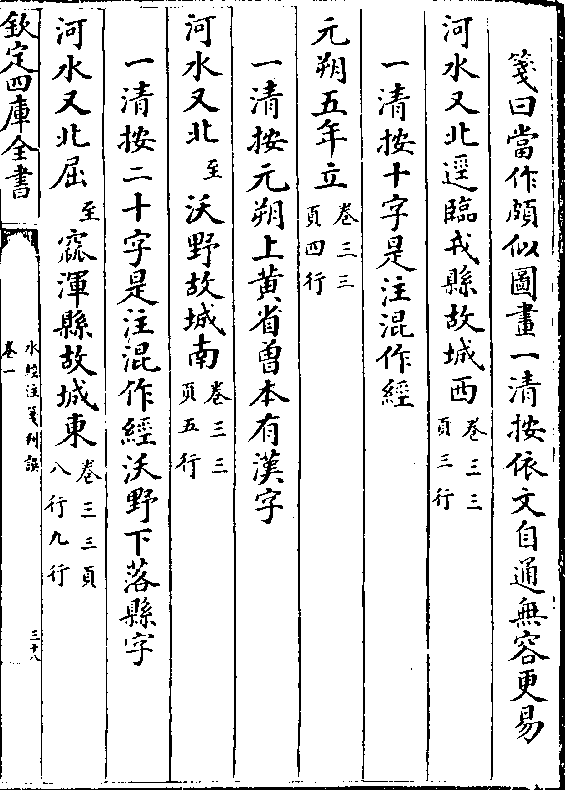 箋曰當作頗似圖畫一清按依文自通無容更易
河水又北逕臨戎縣故城西卷三三頁三行
一清按十字是注混作經
元朔五年立卷三三頁四行
一清按元朔上黄省曾本有漢字
河水又北至沃野故城南卷三三頁五行
一清按二十字是注混作經沃野下落縣字
河水又北屈至窳渾縣故城東卷三三頁八行九行
欽定四庫全書
水經注箋刋誤
卷一
三十八